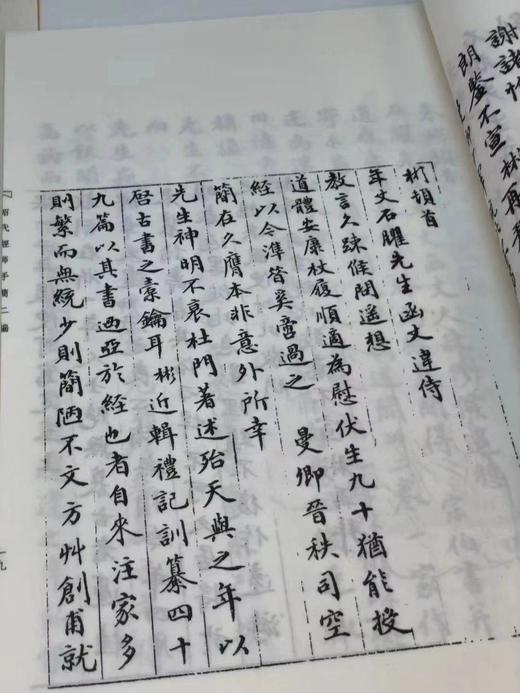 謝諸
朗鑒不宣彬再
彬頓首
年丈石臞先生函丈違侍
教言久疎候問遙想
道體安康杖履順適為慰伏生九十猶能授
經以今準昔奚啻過之 曼卿晉秩司空
簡在久膺本非意外所幸
先生神明不衰杜門著述殆天與之年以
啓古書之橐鑰耳彬近輯禮記訓纂四十
九篇以其書西亞於經也者自來注家多
則繁而無統少則簡陋不文方艸創甫就
昭代經師手簡二編